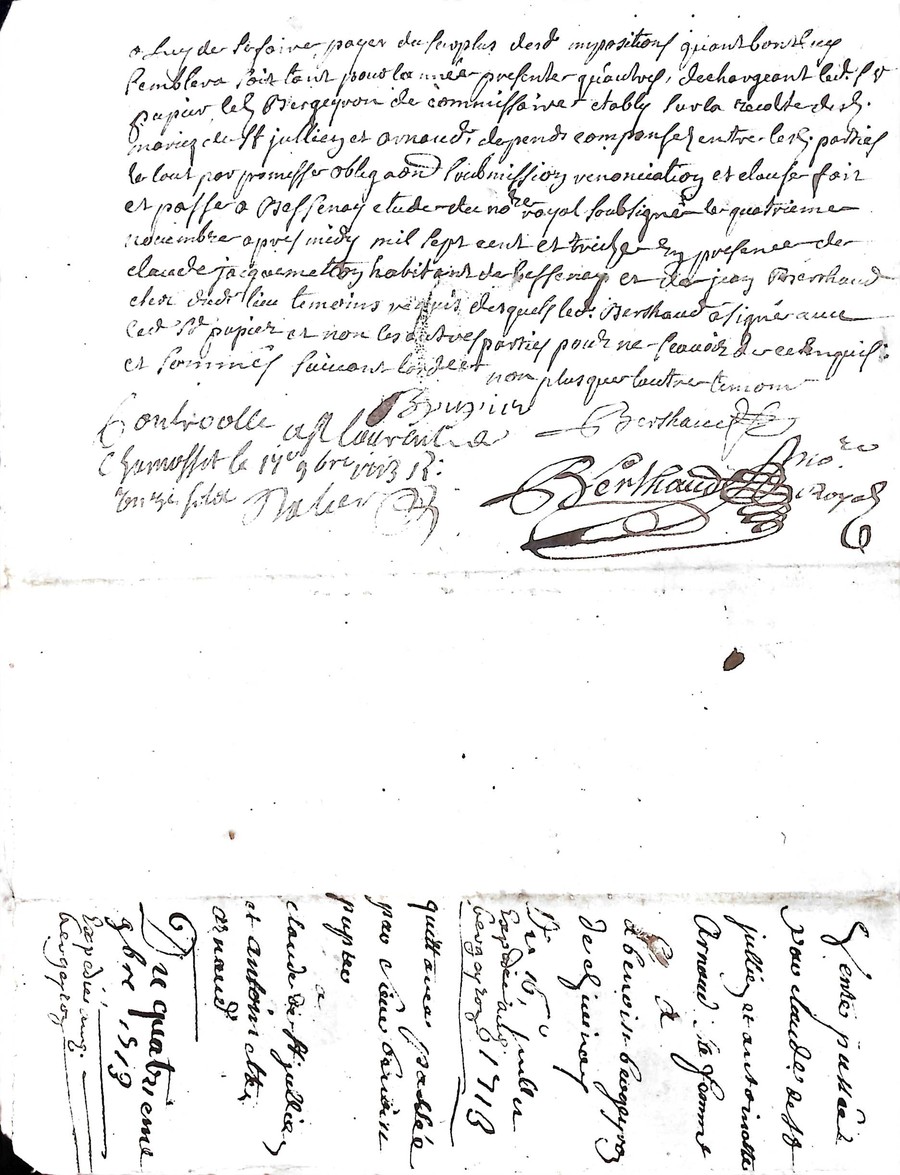 a luy de se faire payer du surplus desd impositions quant bon luy
semblera soit tant pour la année presente qu'autres, dechargeant led. Sr
papier led Bergeyron de commissaire etably sur la recolte desd.
mariez de St jullien et arnaud, depends compensez entre lesd. parties
le tout par promesse obligaõn soubmission renonciation et clause fait
et passé a Bessenay etude du nore royal soubsigné le quatrieme
novembre apres midy mil sept cent et treize en presence de
claude jacquemetton habitant de bessenay et de jean Berthaud
clerc dudt lieu temoins requis desquels led. Berthaud a signé avec
led Sr papier et non les autres parties pour ne scavoir de ce enquis
et sommés suivant lorde et non plus que lautre temoin
Berthaud
Controollé a St laurent de
Chamosset le 17e 9bre 1713 R:
onze sols
Berthaud nore
Royal
Vente passée
par claude de St
jullien et antoinette
Arnaud sa femme
a
a benoist bergeyron
de chiviney
Du 16e juillet
1713
Expedié aud.
bergeyron
quittance passée
par sieur
papier
a
claude de St jullien
et antoinette
arnaud
Du quatrieme
9bre 1713
Expedié aud.
bergeyron